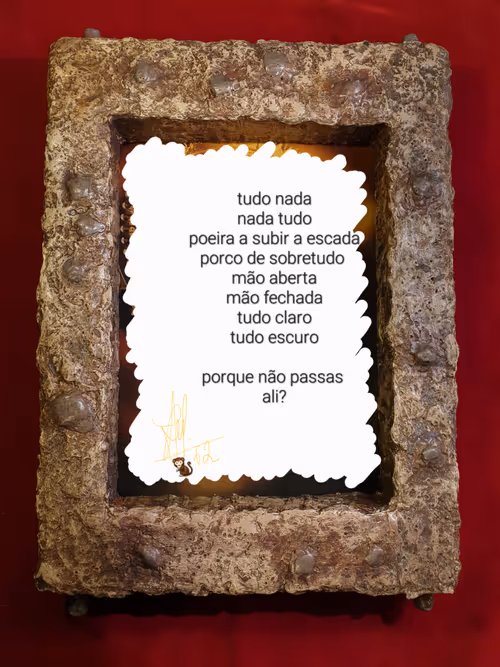 tudo nada
nada tudo
poeira a subir a escada
porco de sobretudo
mão aberta
mão fechada
tudo claro
tudo escuro
porque não passas
ali?